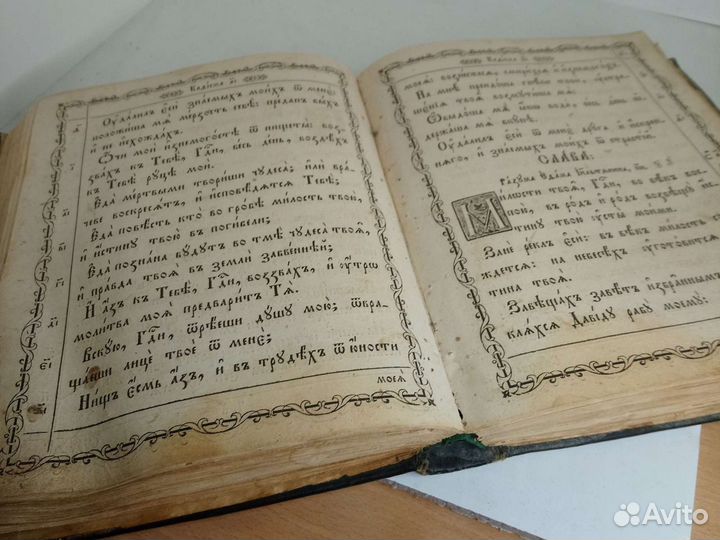 Каѳісма в҃і
Ѹ҆дали́лъ є҆сѝ зна́емыхъ мои́хъ ѿ менє̀
положи́ша мѧ̀ ме́рзость себѣ̀: пре́данъ бы́хъ
и҆ не и҆схожда́хъ.
Ѻ҆́чи моѝ и҆знемого́стѣ ѿ нищеты̀: воз-
зва́хъ къ Тебѣ̀, Гд҃и, ве́сь де́нь, воздѣ́хъ
къ Тебѣ̀ рꙋ́цѣ моѝ.
Є҆да̀ ме́ртвыми твори́ши чꙋдеса̀; и҆лѝ вра-
чеве воскреся́тъ, и҆ и҆сповѣ́дѧтсѧ Тебѣ̀;
Є҆да̀ повѣ́сть кто̀ во гро́бѣ ми́лость твою̀,
и҆ и҆́стинꙋ твою̀ въ поги́бели;
Є҆да̀ позна́на бꙋ́дꙋтъ во тмѣ̀ чꙋдеса̀ твоѧ̑,
и҆ пра́вда твоѧ̀ въ землѝ забве́ннѣй;
И҆ а҆́зъ къ Тебѣ̀, Гд҃и, воззва́хъ, и҆ ѹ҆́трѡ
моли́тва моѧ̀ предвари́тъ Тѧ̀.
Вскꙋ́ю, Гд҃и, ѿрѣ́еши дꙋ́шꙋ мою̀; ѿвра-
ща́еши лицѐ твоѐ ѿ менє̀;
Ни́щъ є҆́смь а҆́зъ, и҆ въ трꙋдѣ́хъ ѿ ю҆́ности
моеѧ̀
Каѳісма в҃і
На мнѣ̀
ще́нїѧ твоѧ̑ возмꙋти́ша мѧ̀.
Ѡ҆быдо́ша мѧ̀ ꙗ҆́кѡ вода̀, ве́сь де́нь ѡ҆-
держа́ша мѧ̀ вкꙋ́пѣ.
Ѹ҆дали́лъ є҆сѝ ѿ менє̀ дрꙋ́га и҆ и҆́скрен-
нѧго, и҆ зна́емыхъ мои́хъ ѿ страсте́й.
СЛА́ВА:
Ра́зꙋма
Ми́лѡсти твоѧ̑, Гд҃и, во вѣ́къ вос-
пою̀, въ ро́дъ и҆ ро́дъ возвѣщꙋ̀ и҆́с-
тинꙋ твою̀ ѹ҆сты̑ мои́ми.
Занѐ ре́клъ є҆сѝ: въ вѣ́къ ми́лость
жде́тсѧ: на небесѣ́хъ ѹ҆гото́витсѧ
тина твоѧ̀.
Завѣща́хъ завѣ́тъ и҆збра́ннымъ
клѧ́хсѧ Даві́дꙋ рабꙋ̀ моемꙋ̀:
Avito